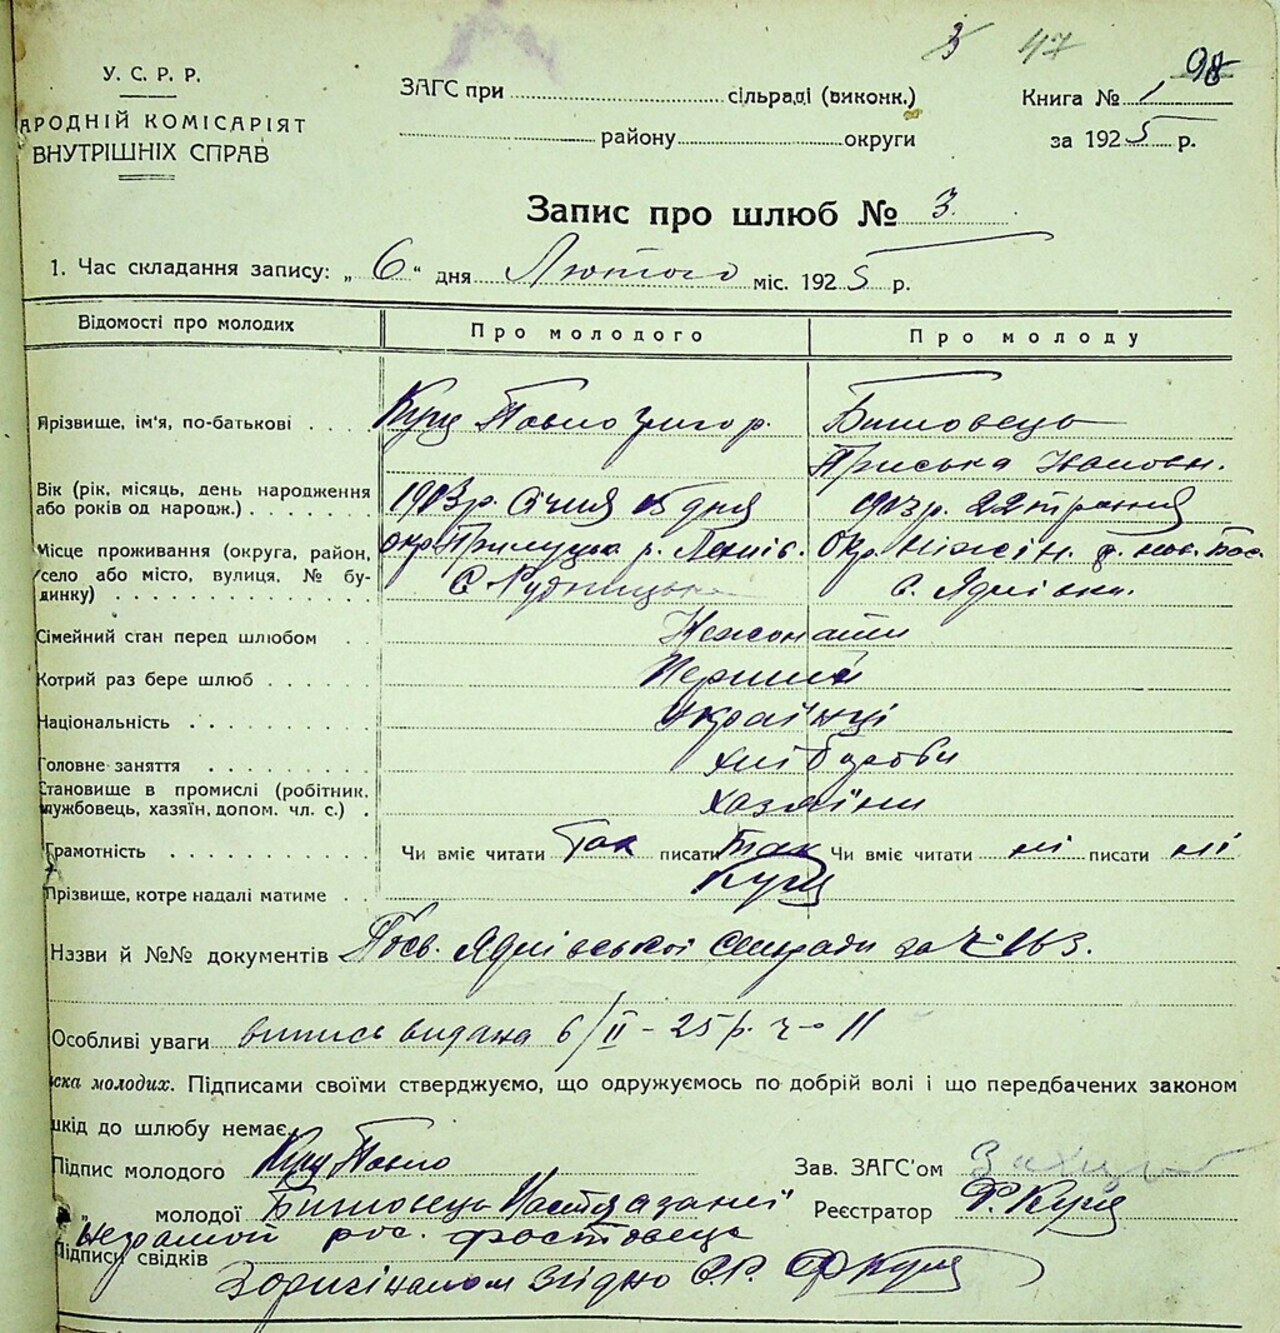 3 47 98
У. С. Р. Р.
АРОДНІЙ КОМІСАРІЯТ
ВНУТРІШНІХ СПРАВ
ЗАГС при сільраді (виконк.)
району округи
Книга № 1
за 1925 р.
Запис про шлюб № 3.
1. Час складання запису: „ 6 “ дня Лютого міс. 1925 р.
Відомості про молодих Про молодого Про молоду
Прізвище, ім'я, по-батькові Кущ Павло Григор. Битовець
Приська Івановн.
Вік (рік, місяць, день народження
або років од народж.) 1903 р. Січня 15 дня 1903 р. 22 травня
Місце проживання (округа, район, окр. Прилуцька р. Окр. Ніжін.
село або місто, вулиця, № бу- с. с. Яднівка.
динку)
Сімейний стан перед шлюбом Нежонати
Котрий раз бере шлюб Перший
Національність Українці
Головне заняття хлібороби
Становище в промислі (робітник,
лужбовець, хазяїн, допом. чл. с.) хазяїни
Грамотність Чи вміє читати Так писати Так Чи вміє читати ні писати ні
Прізвище, котре надалі матиме Кущ
Назви й №№ документів Посв. Яднівської Сельради за ч 163.
Особливі уваги випись видана 6/II - 25 р. ч 11
ска молодих. Підписами своїми стверджуємо, що одружуємось по добрій волі і що передбачених законом
шкід до шлюбу немає.
Підпис молодого Кущ Павло Зав. ЗАГС'ом
„ молодої Битовець Реєстратор Ф. Кущ
рос. Фостовець
Підписи свідків
З оригіналом згідно Ф Кущ